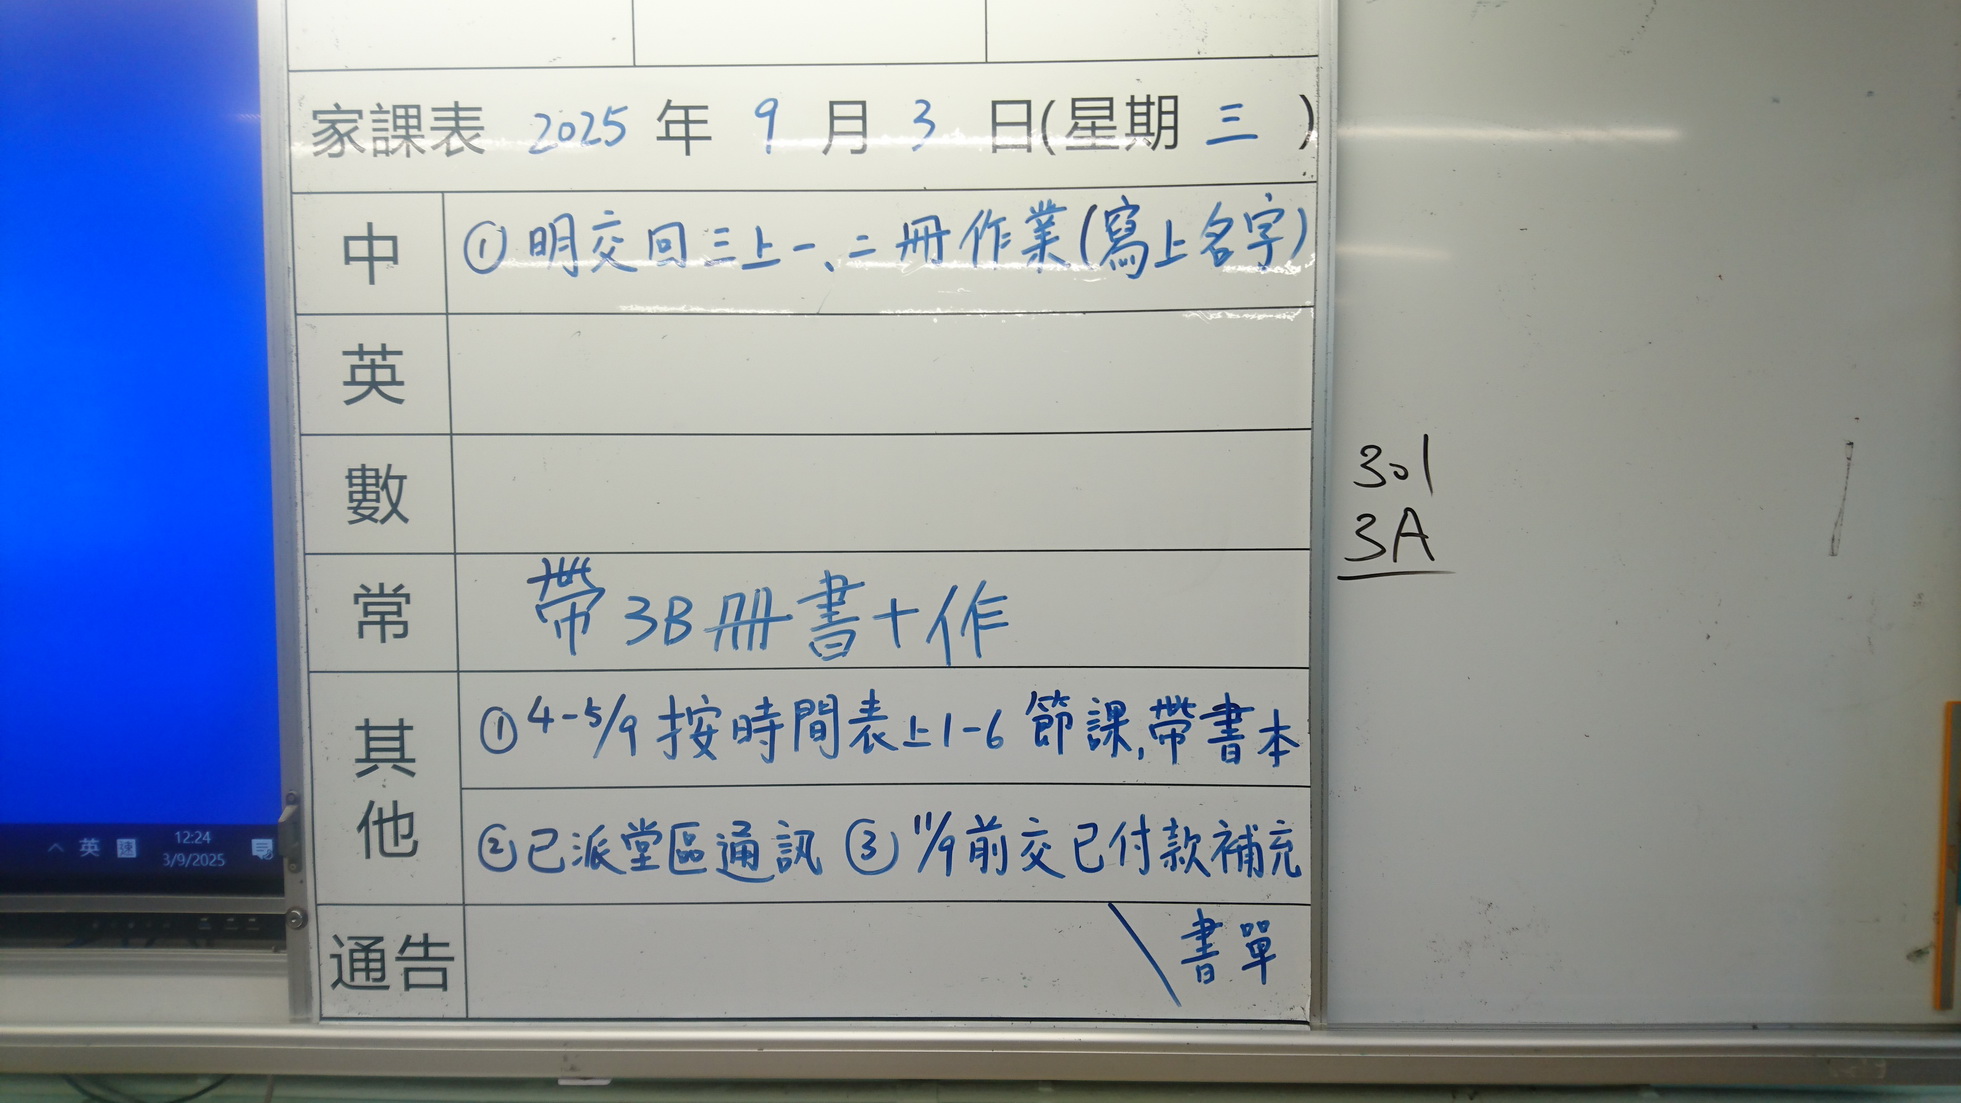 家課表 2025 年 9 月 3 日(星期 三 )
中 ①明交回三上一、二冊作業(寫上名字)
英
數
常 帶3B冊書+作
其他 ①4-5/9 按時間表上1-6節課,帶書本
②已派堂區通訊 ③11/9前交已付款補充
通告 書單
301
3A
英 速 12:24
3/9/2025